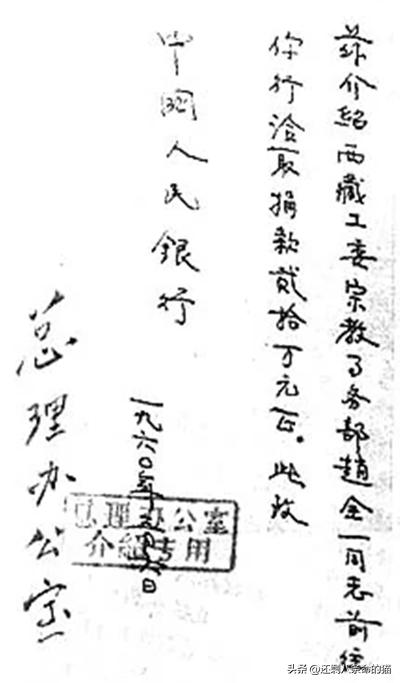 兹介绍西藏工委宗教事务部趙全一同志前往
你行洽取捐款贰拾万元正。此致
中國人民銀行
总理办公室
一九六〇年三月六日
总理办公室
介紹专用
头条 @还剩八条命的猫